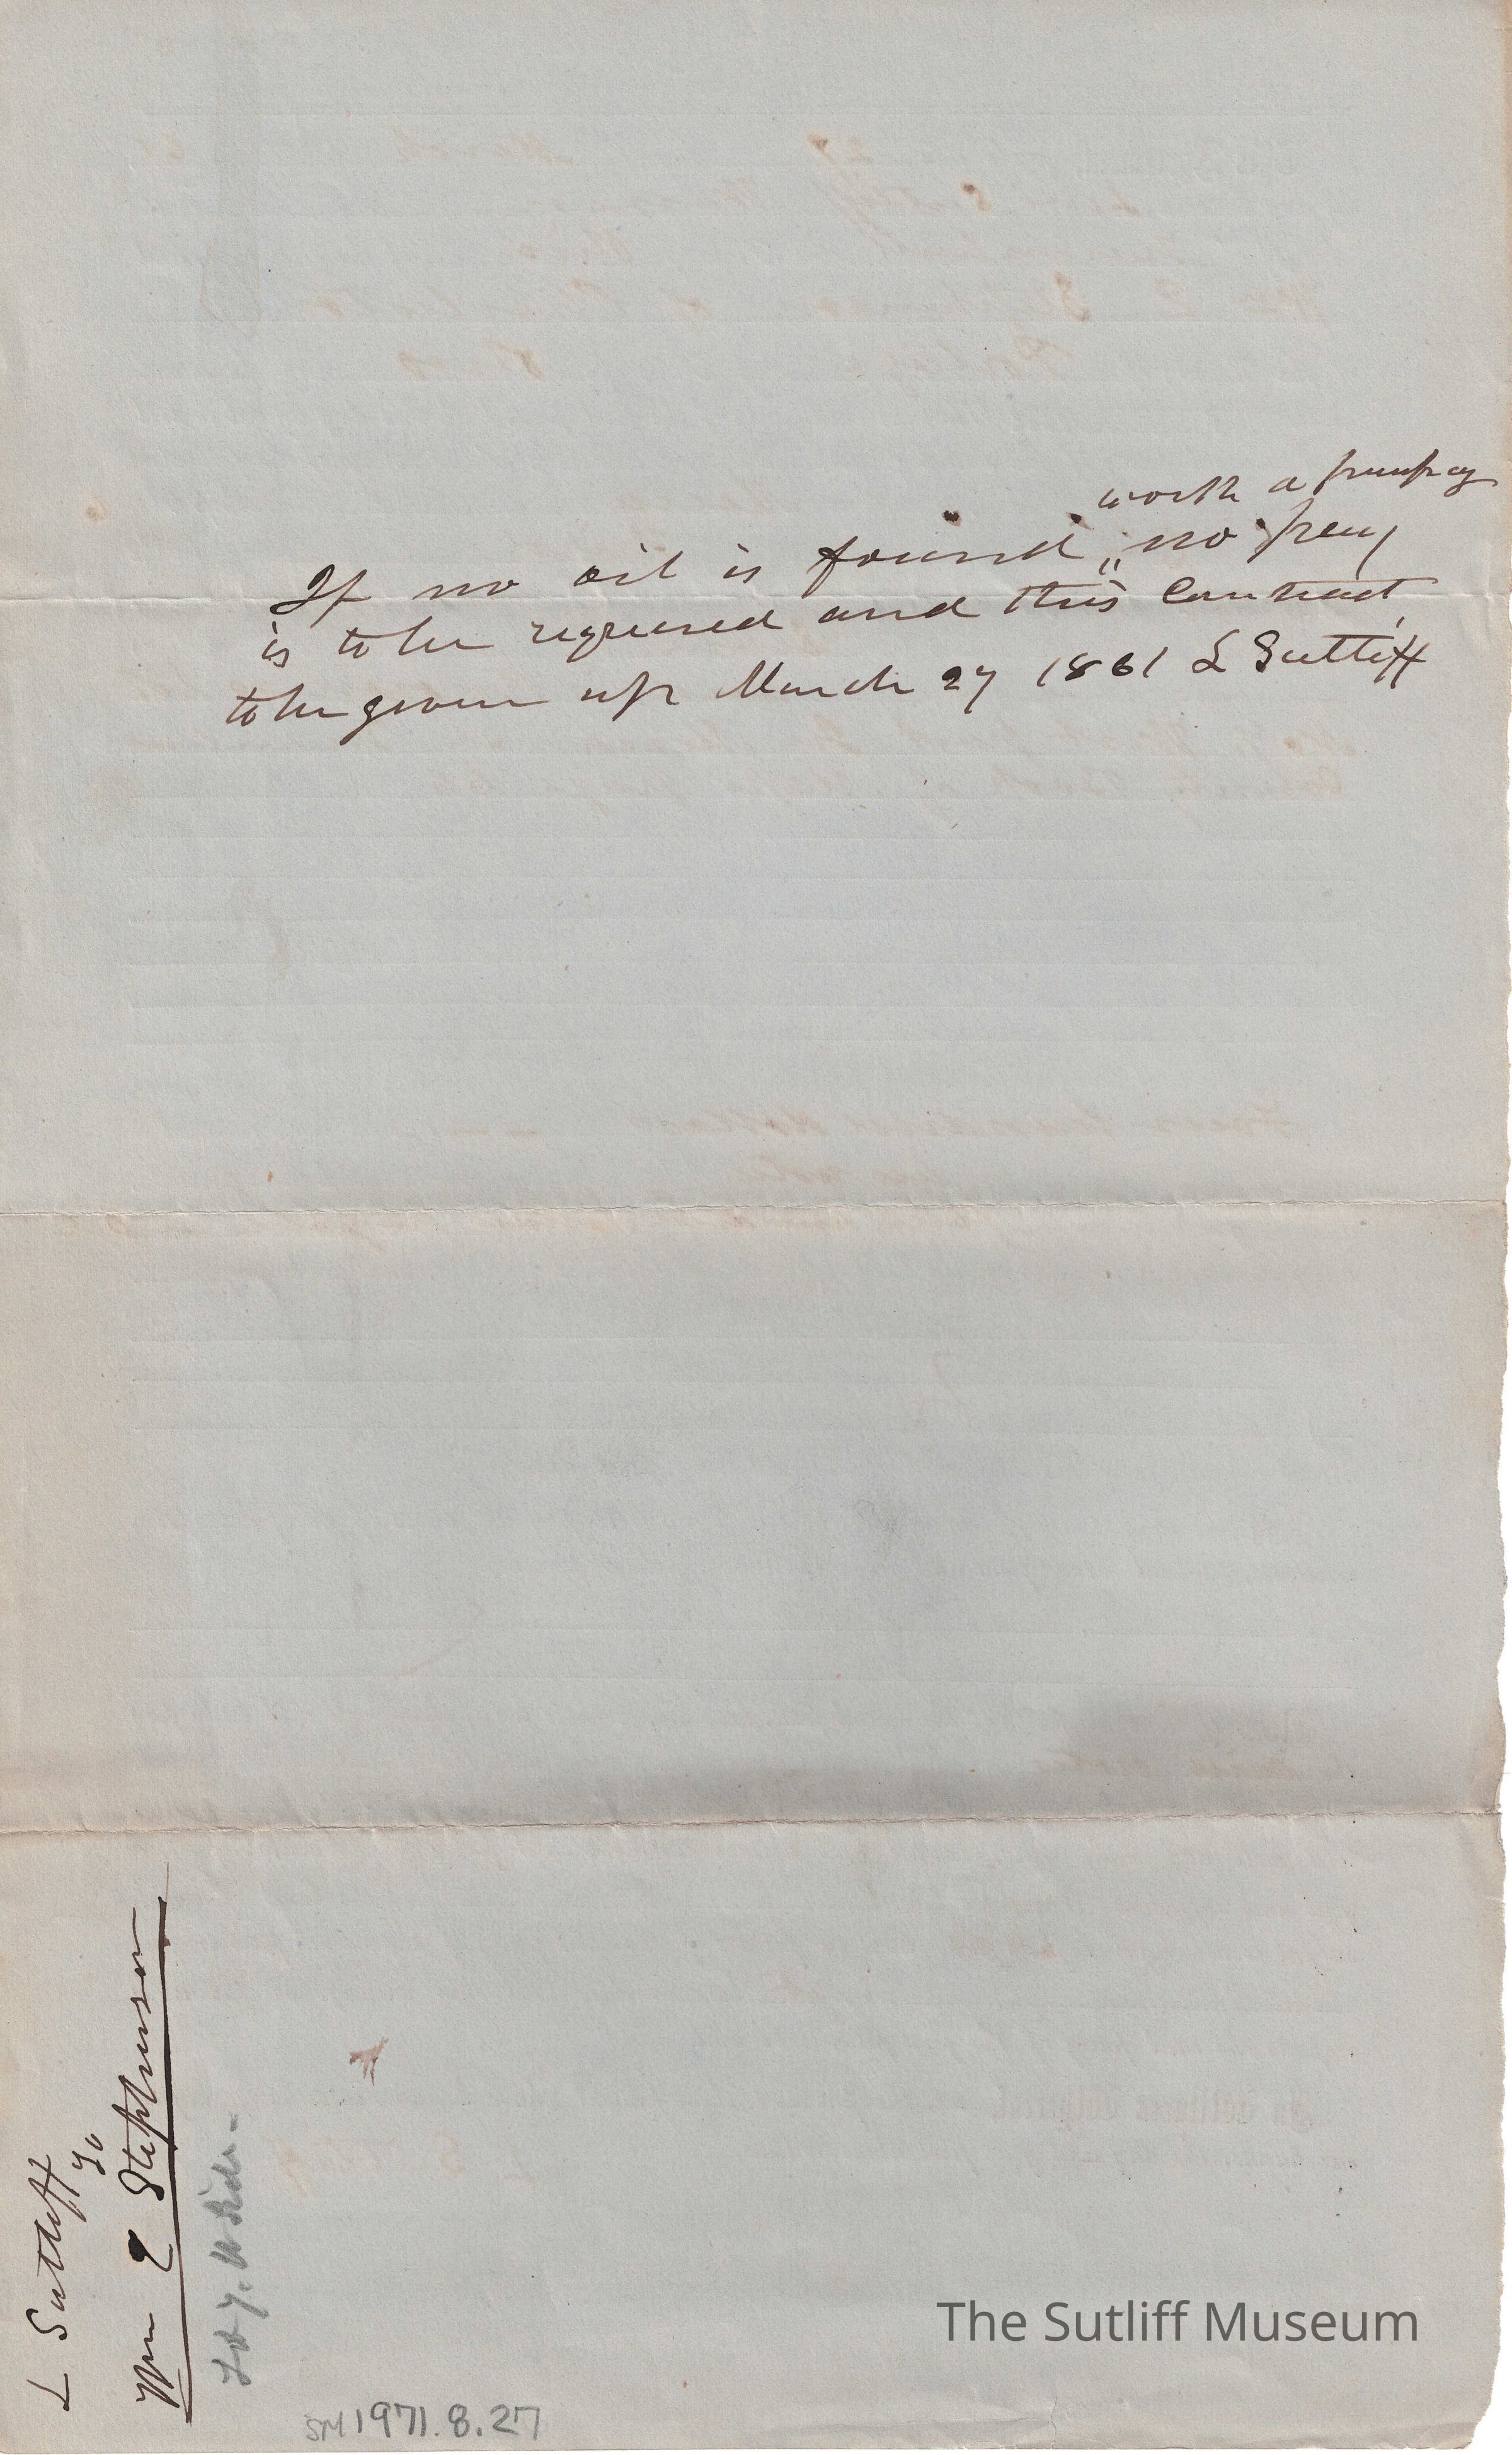 worth a pumping
If no oil is found " no pay
is to be required and this Contract
to be given up March 27 1861 L Sutliff
L Sutliff
To
Wm L Stephenson
SM1971.8.27
The Sutliff Museum